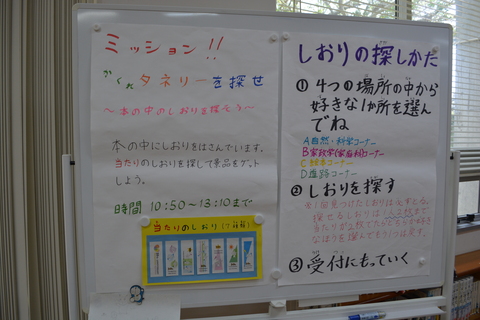 ミッション!!
かくれタネリーを探せ
～本の中のしおりを探そう～
本の中にしおりをはさんでいます。
当たりのしおりを探して景品をゲット
しよう。
時間 10:50～13:10まで
当たりのしおり(7種類)
しおりの探しかた
① 4つの場所の中から
好きな1か所を選ん
でね
A 自然・科学コーナー
B 家政学(家庭科)コーナー
C 絵本コーナー
D 進路コーナー
② しおりを探す
探せるしおりは1人2枚まで
③ 受付にもっていく